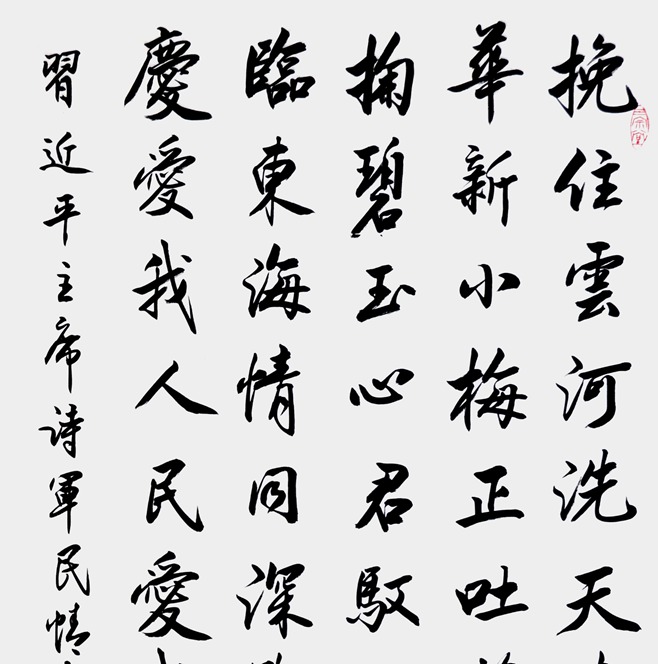 挽住雲河洗天
華新小梅正吐
掬碧玉心君馭
臨東海情同深
慶愛我人民愛
習近平主席詩軍民情